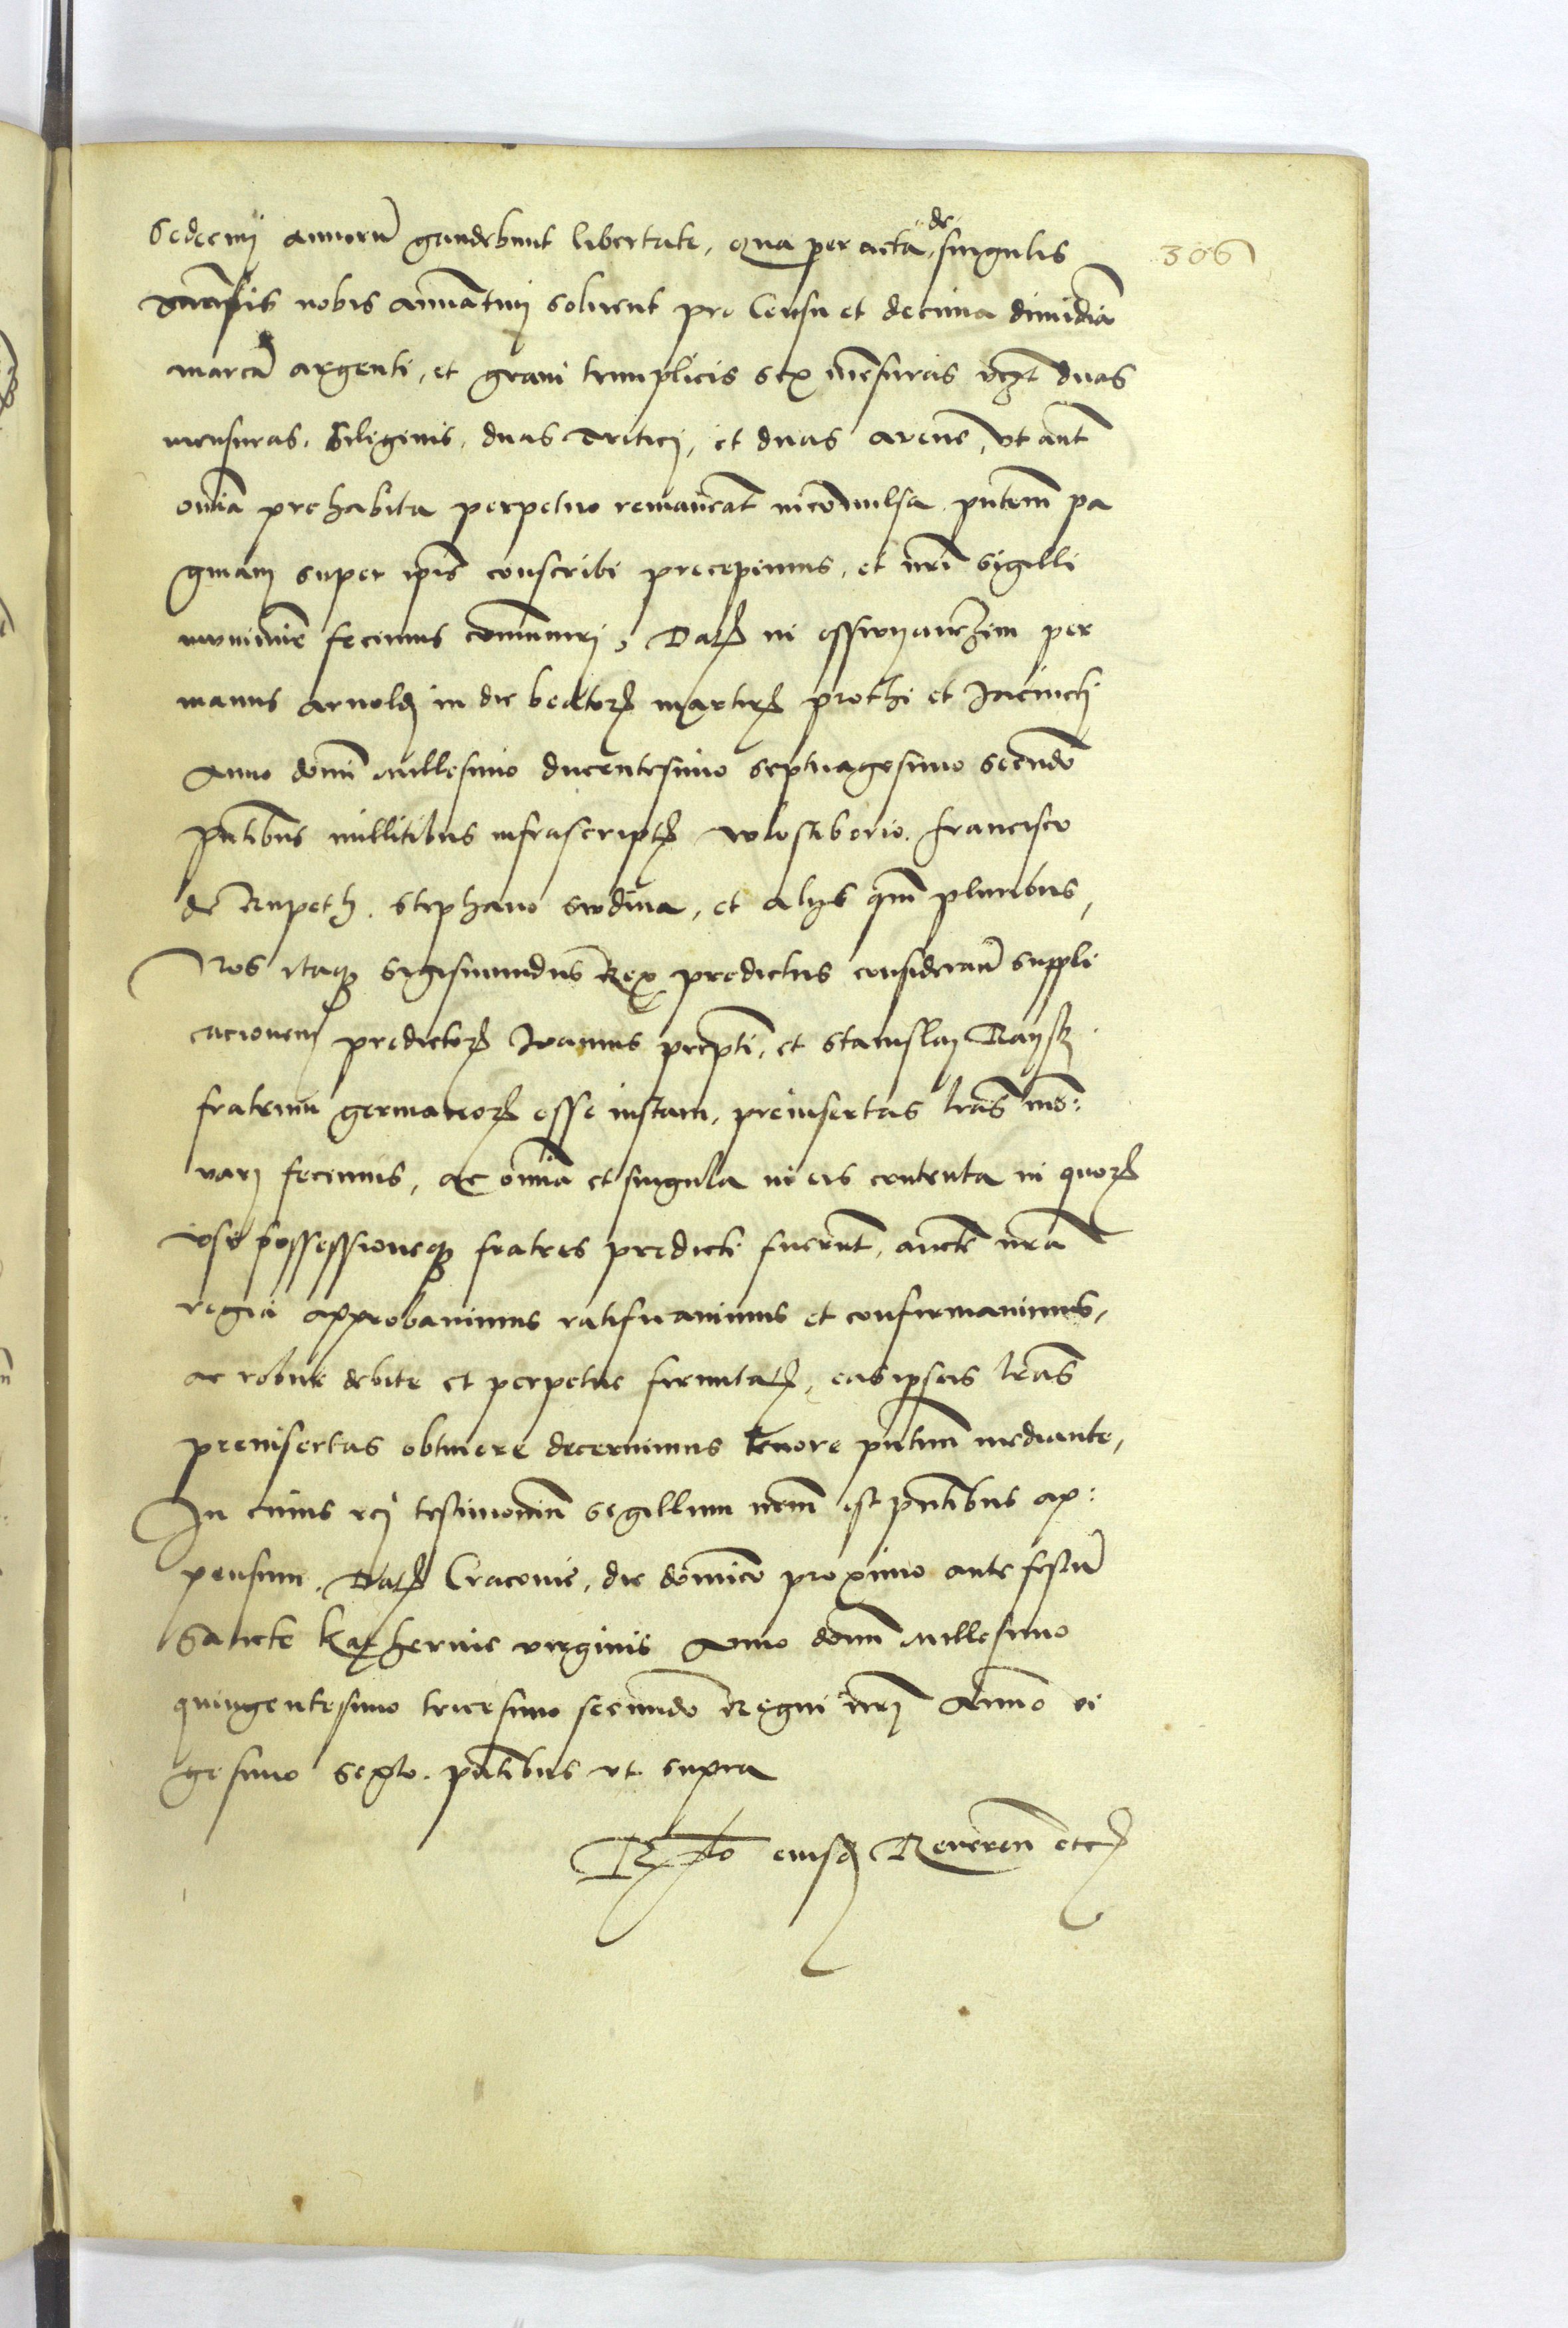 306
Sedecim annorum gaudebunt libertate, qua per acta de singulis
mansis nobis annuatim soluent pro Censu et decima dimidiam
marcam argenti, et grani trimplicis sex mensuras vczt duas
mensuras Siligenis, duas tritici, et duas avene, vt aut
omia prehabita perpetuo remaneat inconwulsa, pntem pa
ginam super ipis conscribi precepimus, et nri sigilli
munimine fecimus comuniri, Dat in osswyanczim per
manus Arnoldi in die beator martir prothi et Jacincti
Anno domi millesimo ducentesimo septuagesimo secundo
pntibus millitibus infrascript wlostiborio, francisco
de Rupeth, Stephano swdina, et alys qm pluribus,
Nos itaq Sigismundus Rex predictus consideran suppli
cacionem predictor Joannis prepti, et Stanislai Raysky
fratrum germanor esse iustam, preinsertas lras inno:
uari fecimus, ac omia et singula in eis contenta in quor
vse possessioneq fratres predicti fuerunt, aucte nra
regia approbauimus ratificauimus et confirmauimus,
ac robur debite et perpetue firmitat, eas ipsas lras
preinsertas obtinere decernimus tenore pntium mediante,
In cuius rei testimonium sigillum nrm est pntibus ap:
pensum, Dat Cracovie, die domico proximo ante festum
Sancte Katherine virginis Anno domi millesimo
quingentesimo tricesimo secundo Regni nri Anno vi
gesimo sexto. pntibus vt supra
Rlo eiusd Reueren etc